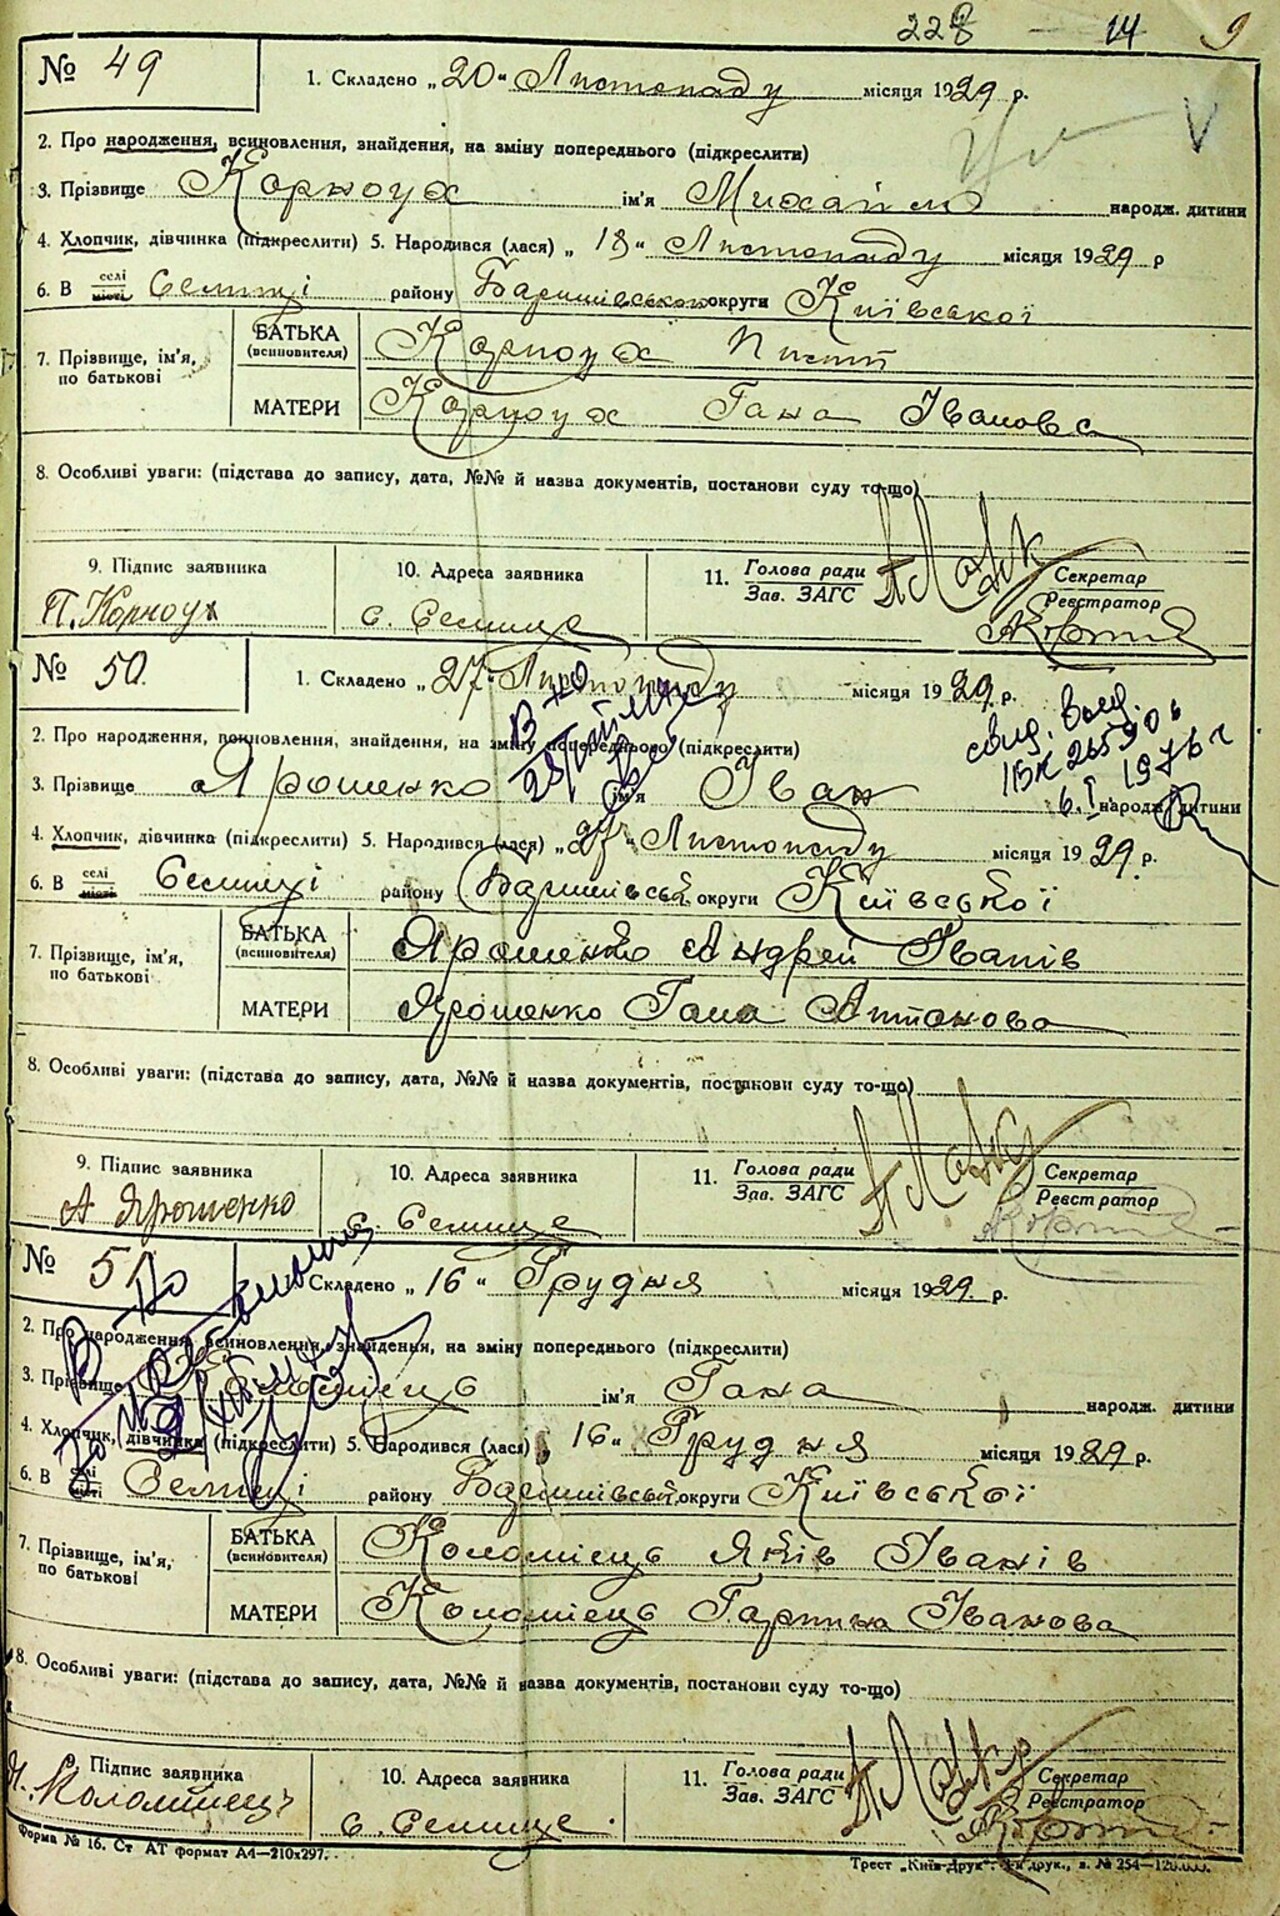 228 — 14 9
№ 49
1. Складено „20“ Листопаду місяця 1929 р.
2. Про народження, всиновлення, знайдення, на зміну попереднього (підкреслити)
3. Прізвище Корноух ім'я Михайло народж. дитини
4. Хлопчик, дівчинка (підкреслити) 5. Народився (лася) „18“ Листопаду місяця 1929 р
6. В селі місті Селищі району Баришівської округи Київської
7. Прізвище, ім'я, по батькові
БАТЬКА (всиновителя) Корноух
МАТЕРИ Корноух Гана Іванова
8. Особливі уваги: (підстава до запису, дата, №№ й назва документів, постанови суду то-що)
9. Підпис заявника
П. Корноух
10. Адреса заявника
с. Селище
11. Голова ради
Зав. ЗАГС
Секретар
Реєстратор
№ 50.
1. Складено „27“ Листопаду місяця 1929 р.
свид. выд.
6.I 1976 г
2. Про народження, всиновлення, знайдення, на зміну попереднього (підкреслити)
3. Прізвище Ярошенко ім'я Іван народж. дитини
4. Хлопчик, дівчинка (підкреслити) 5. Народився (лася) „27“ Листопаду місяця 1929 р.
6. В селі місті Селищі району Баришівськ. округи Київської
7. Прізвище, ім'я, по батькові
БАТЬКА (всиновителя) Ярошенко Андрей Іванів
МАТЕРИ Ярошенко Гана Антонова
8. Особливі уваги: (підстава до запису, дата, №№ й назва документів, постанови суду то-що)
9. Підпис заявника
А Ярошенко
10. Адреса заявника
с. Селище
11. Голова ради
Зав. ЗАГС
Секретар
Реєстратор
№ 51
1. Складено „16“ Грудня місяця 1929 р.
2. Про народження, всиновлення, знайдення, на зміну попереднього (підкреслити)
3. Прізвище Коломієць ім'я Гана народж. дитини
4. Хлопчик, дівчинка (підкреслити) 5. Народився (лася) „16“ Грудня місяця 1929 р.
6. В селі місті Селищі району Баришівськ. округи Київської
7. Прізвище, ім'я, по батькові
БАТЬКА (всиновителя) Коломієць Яків Іванів
МАТЕРИ Коломієць Гарпина Іванова
8. Особливі уваги: (підстава до запису, дата, №№ й назва документів, постанови суду то-що)
Підпис заявника
Коломиец
10. Адреса заявника
с. Селище.
11. Голова ради
Зав. ЗАГС
Секретар
Реєстратор
Форма № 16. Ст АТ формат А4—210х297.
Трест „Київ-Друк“. друк., з. № 254—120.000.